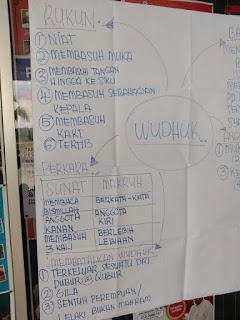 RUKUN:
① NIAT
② MEMBASUH MUKA
③ MEMBASUH TANGAN
HINGGA KE SIKU
④ MEMBASUH SEBAHAGIAN
KEPALA
⑤ MEMBASUH
KAKI
⑥ TERTIB
WUDHUK
PERKARA
SUNAT MAKRUH
MEMBACA BERKATA-KATA
BISMILLAH
ANGGOTA ANGGOTA
KANAN KIRI
MEMBASUH BERLEBIH
3 KALI LEBIHAN
MEMBATALKAN WUDHUK
① TERKELUAR SESUATU DRI
DUBUR @ QUBUR
② GILA
③ SENTUH PEREMPUAN/
LELAKI BUKAN MAHRAM